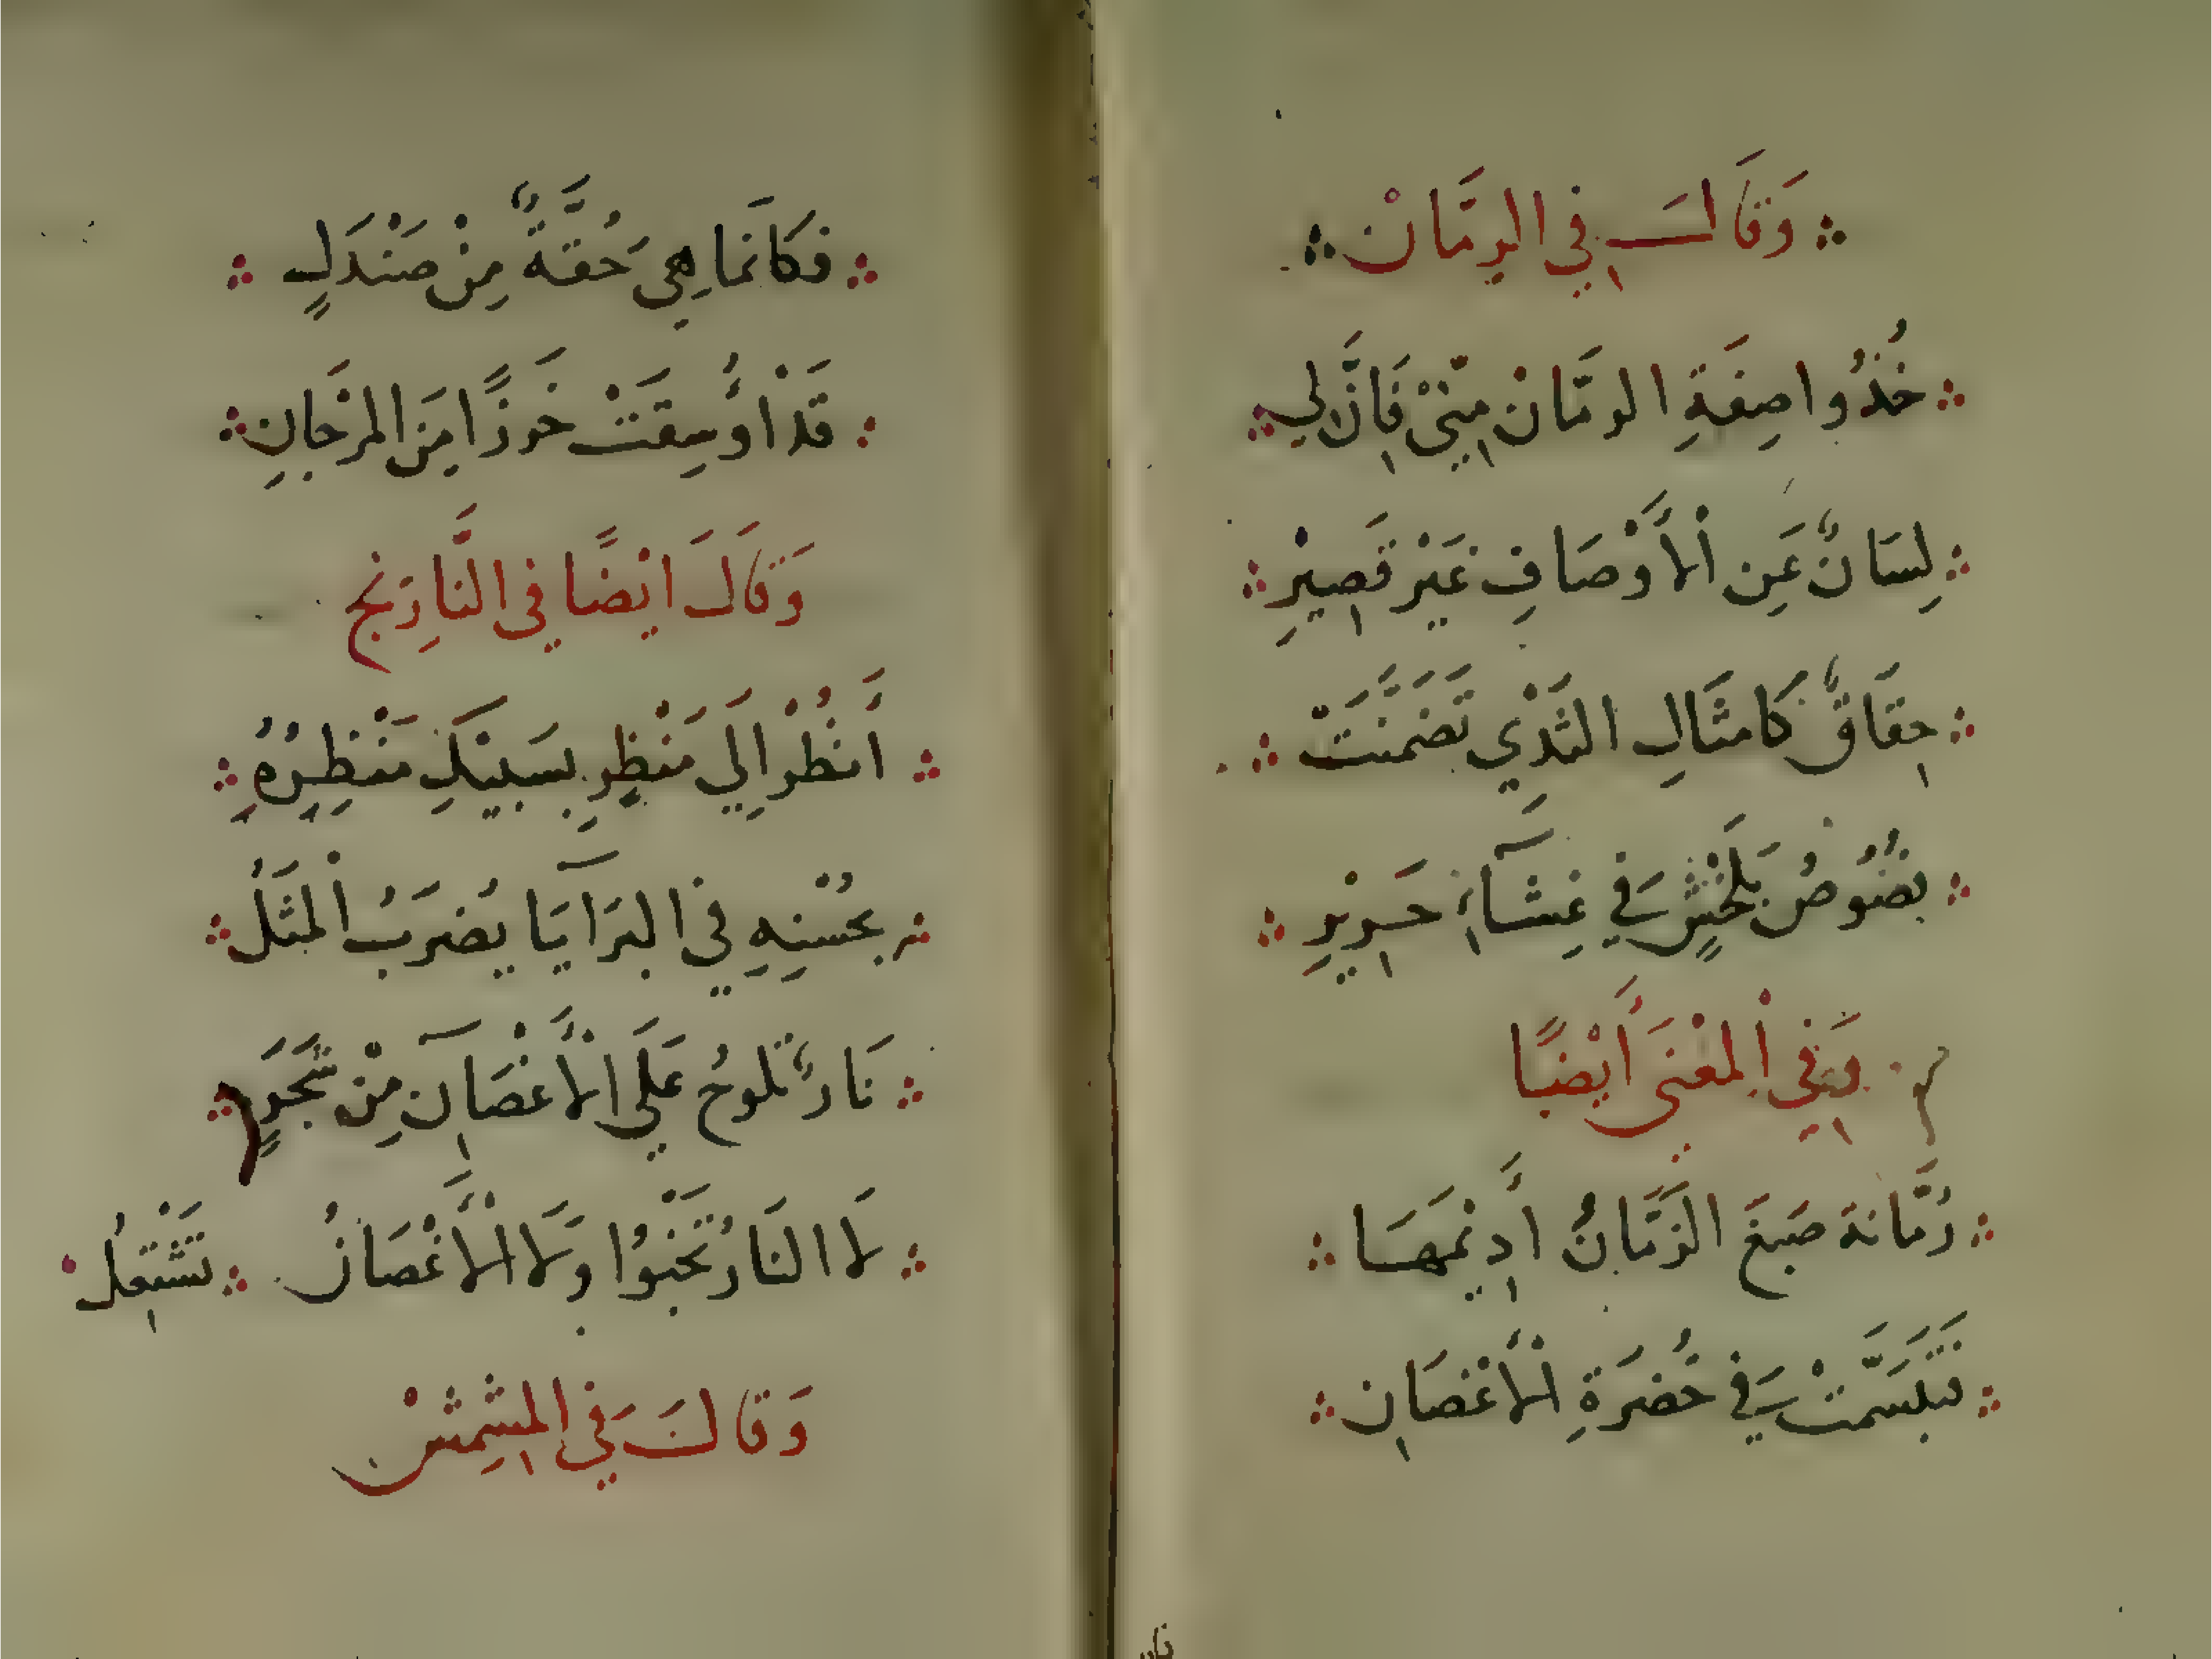 وَقَالَ فِي الرمَّانْ
خُذُوا صِفَةِ الرمَّانْ مِنّيْ فَاِنَّ لِي
لِسَانٌ عَنِ الْأَوْصَافِ غَيْر قَصِيْرِ
حِقَاقٌ كَامثَالِ الثَدْيِ تَضَمَنَتّ
بصُوُصُ بَلَخْشٍ فِي غِشَآءِ حَرِيْرِ
وَفِي اْلمَعْنَى أَيْضًا
رُمَّانة صَبَغَ الزَمَّانُ أَدِيْمَهَا
فَتَبَسَمّتْ فِي خُضرَةِ الْأَغْصَانِ
فكَانَمَا هِيَ حُقَةٌ مِنْ صَنْدَلٍ
قَدْ أُوسِقَتْ خَرزًا مِنَ المرْجَانِ
وَقَالَ ايْضًا فِي النَّارِنج
أَنظُرْ اِلَى مَنْظِرٍ يسَبيْكَ مَنْظِرُهُ
بحُسْنِهِ فِي البَرَايَا يُضرَبُ اْلمثَلُ
نَارٌ تَلوحُ عَلَى الْأَغْصَانِ مِنْ شَجَرٍ
لَا النَارُ تَخْبُوا وَلَا الْأَغْصَانُ تَشْتَعِلُ
وَقَالَ فِي المشِمْشْ